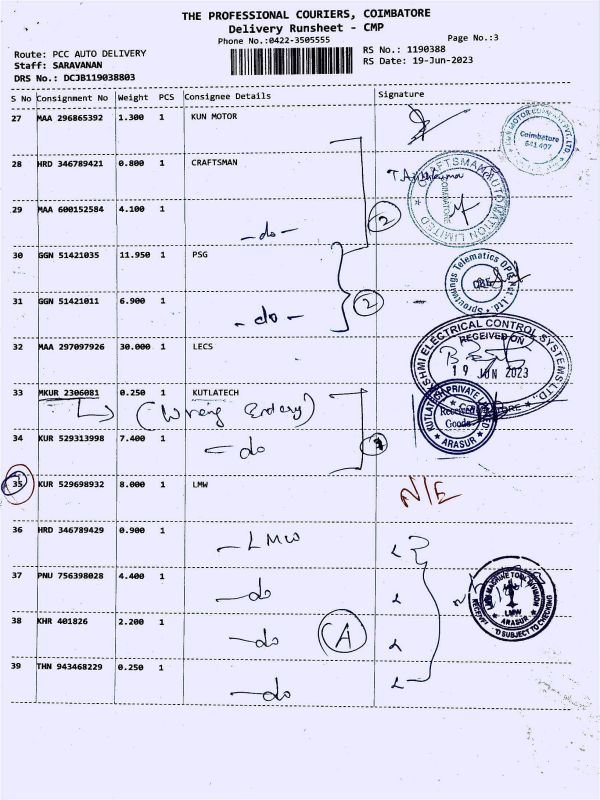 THE PROFESSIONAL COURIERS, COIMBATORE
Delivery Runsheet - CMP
Phone No.:0422-3505555
Page No.:3
Route: PCC AUTO DELIVERY
RS No.: 1190388
Staff: SARAVANAN
RS Date: 19-Jun-2023
DRS No.: DCJB119038803
S No Consignment No Weight PCS Consignee Details Signature
27 MAA 296865392 1.300 1 KUN MOTOR
Coimbatore
641 407
28 HRD 346789421 0.800 1 CRAFTSMAN
CRAFTSMAN AUTOMATION LIMITED
COIMBATORE
29 MAA 600152584 4.100 1
- do - 2
30 GGN 51421035 11.950 1 PSG
Sproutwings Telematics
31 GGN 51421011 6.900 1
- do - 2
32 MAA 297097926 30.000 1 LECS
ELECTRICAL CONTROL SYSTEMS LTD.
RECEIVED ON
19 JUN 2023
33 MKUR 2306081 0.250 1 KUTLATECH
(Wrong Entery)
KUTLATECH PRIVATE LIMITED
Received
Goods
ARASUR
34 KUR 529313998 7.400 1
- do
35 KUR 529698932 8.000 1 LMW
N/E
36 HRD 346789429 0.900 1
- LMW
37 PNU 756398028 4.400 1
- do
LMW MACHINE TOOL DIVISION
LMW
ARASUR
SUBJECT TO CHECKING
38 KHR 401826 2.200 1
- do
39 THN 943468229 0.250 1
- do